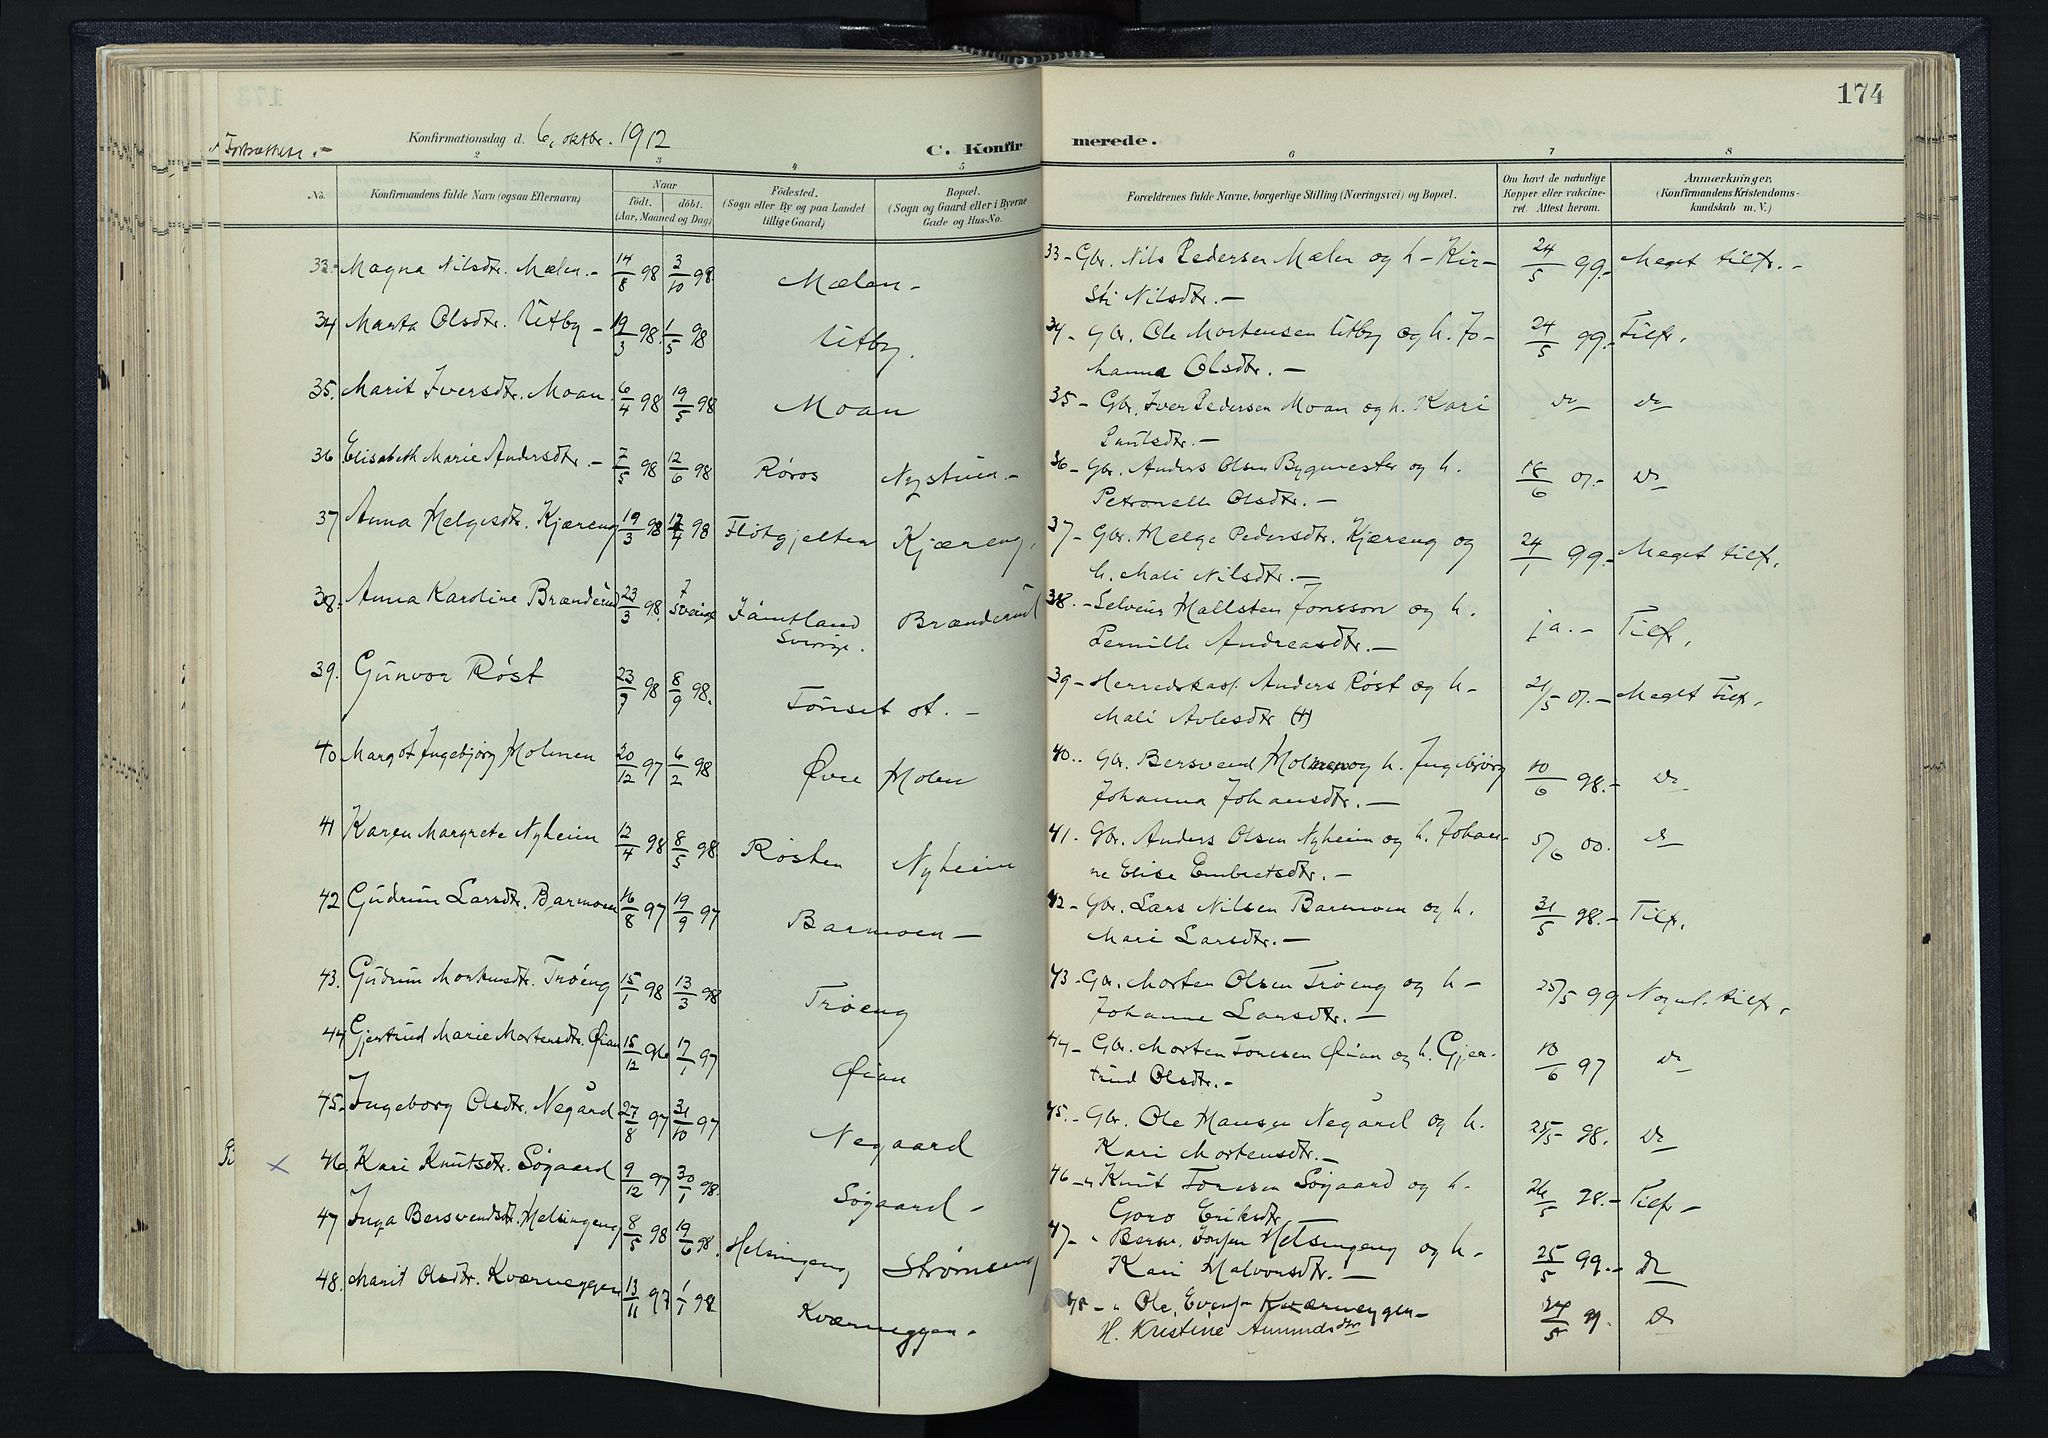 174
Fortsættelse. -
Konfirmationsdag d. 6. oktbr. 1912
C. Konfirmerede.
2 3 4 5 6 7 8
No. Konfirmandens fulde Navn (ogsaa Efternavn)
Naar
født. døbt.
(Aar, Maaned og Dag)
Fødested.
(Sogn eller By og paa Landet
tillige Gaard)
Bopæl.
(Sogn og Gaard eller i Byerne
Gade og Hus-No.
Forældrenes fulde Navne, borgerlige Stilling (Næringsvei) og Bopæl.
Om havt de naturlige
Kopper eller vakcine-
ret. Attest herom.
Anmærkninger,
(Konfirmandens Kristendoms-
kundskab m. V.)
33 - Magna Nilsdtr. Mælen. - 14/8 98 3/10 98 Mælen - 33 - Gbr. Nils Pedersen Mælen og h - Kir- 24/5 99. - Meget tilfr. -
sti Nilsdtr. -
34 Marta Olsdtr. Utby - 19/3 98. 1/5 98 Utby. 34 - Gbr. Ole Mortensen Utby og h. Jo- 24/5 99. - Tilfr.
hanna Olsdtr. -
35. Marit Iversdtr. Moan. 6/4 98 19/5 98 Moan 35 - Gbr. Iver Pedersen Moan og h. Kari do do
Paulsdtr. -
36 Elisabeth Marie Andersdtr. - 7/5 98 12/6 98 Røros Nystuen. - 36 - Gbr. Anders Olsen Bygmester og h. 18/6 07. - do
Petronelle Olsdtr. -
37 Anna Helgesdtr. Kjæreng 19/3 98 17/4 98 Fløtgjelten Kjæreng. 37 - Gbr. Helge Pedersdtr. Kjæreng og 24/1 99. - Meget tilfr.
h. Mali Nilsdtr. -
38. Anna Karoline Brænderud 23/3 98. 7 Sverige Jämtland Brænderud 38. - Selveier Hallsten Jonsson og h. ja. - Tilfr.
Sverige. Pernille Andreasdtr. -
39. Gunvor Røst 23/7 98 8/9 98. Tønset st. - 39 - Herredskas. Anders Røst og h - 21/5 07. - Meget Tilfr.
Mali Avlesdtr (†)
40 Margot Ingebjørg Holmen 20/12 97 6/2 98 Øvre Moen 40.. Gbr. Bersvend Holmen og h. Ingebjørg 10/6 98. - do
Johanna Johansdtr. -
41 Karen Margrete Nyheim 12/4 98 8/5 98 Røsten Nyheim 41. Gbr. Anders Olsen Nyheim og h. Johan- 5/6 00. do
ne Elise Embretsdtr. -
42 Gudrun Larsdtr. Barmoen 16/8 97 19/9 97 Barmoen - 42 - Gbr. Lars Nilsen Barmoen og h. 31/5 98. - Tilfr.
Mari Larsdtr. -
43. Gudrun Mortensdtr. Trøeng 15/1 98 13/3 98 Trøeng 43 - Gbr. Morten Olsen Trøeng og h - 25/5 99 Nogenl. tilfr.
Johanne Larsdtr. -
44 Gjertrud Marie Mortensdtr. Øian 15/12 96 17/1 97 Øian 44 - Gbr. Morten Tøresen Øian og h. Gjer- 10/6 97 do
trud Olsdtr. -
45. Ingeborg Olsdtr. Negård 27/8 97 31/10 97 Negaard 45. - Gbr. Ole Hansen Negård og h. 25/5 98. do
Kari Mortensdtr. -
x 46 Kari Knutsdtr. Søgaard 9/12 97 30/1 98. Søgaard - 46 - " Knut Toresen Søgaard og h. 26/5 98. - Tilfr -
Goro Eriksdtr -
47 Inga Bersvendsdtr. Helsingeng 8/5 98 19/6 98. Helsingeng Strømseng 47 - " Bersv. Jonsen Helsingeng og h - 25/5 99. - do
Kari Halvorsdtr. -
48. Marit Olsdtr. Kværneggen 13/11 97 1/1 98 Kværneggen - 48 - " Ole Evens. Kværneggen - 24/5 99. do
H. Kristine Amundsdtr